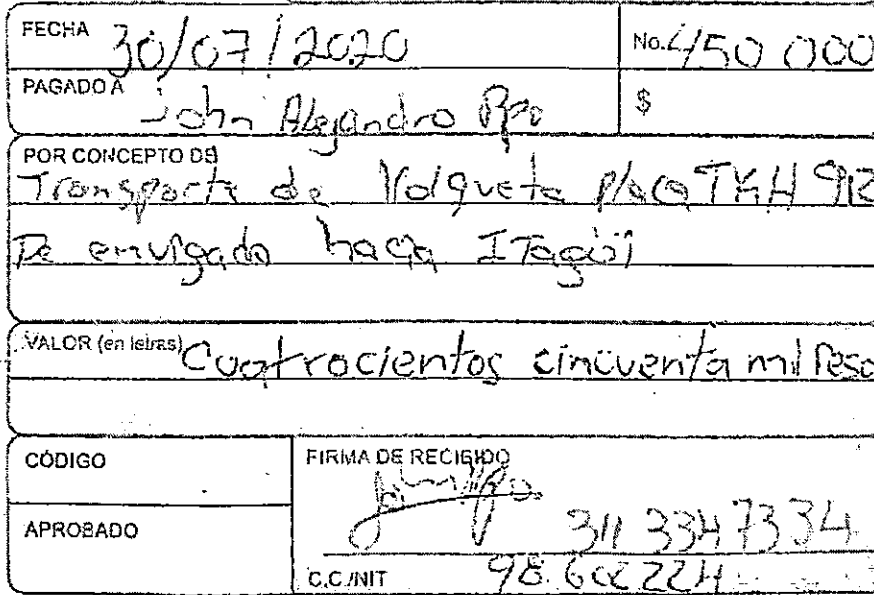 FECHA 30/07/2020
No. 450 000
PAGADO A John Alejandro Rpo
$
POR CONCEPTO DE
Transporte de Volqueta placa TKH 912
De envigado hacia ITagüi
VALOR (en letras) Cuatrocientos cincuenta mil Peso
CÓDIGO
FIRMA DE RECIBIDO
APROBADO
311 334 73 34
C.C./NIT 98.602224